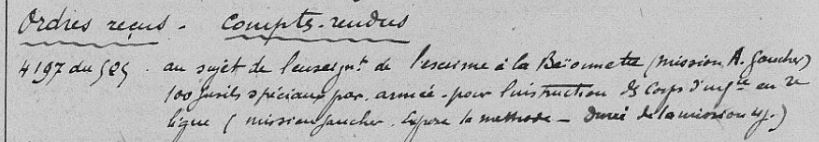 Ordres reçus - Compts-rendus
4197 du 5/25 . au sujet de l'enseignt de l'escrime à la Baïonnette (mission A. Gaucher)
100 fusils spéciaux par armée - pour l'instruction des corps d' en 2e
ligne (mission Gaucher. Expose la méthode - durée de la mission 4j.)